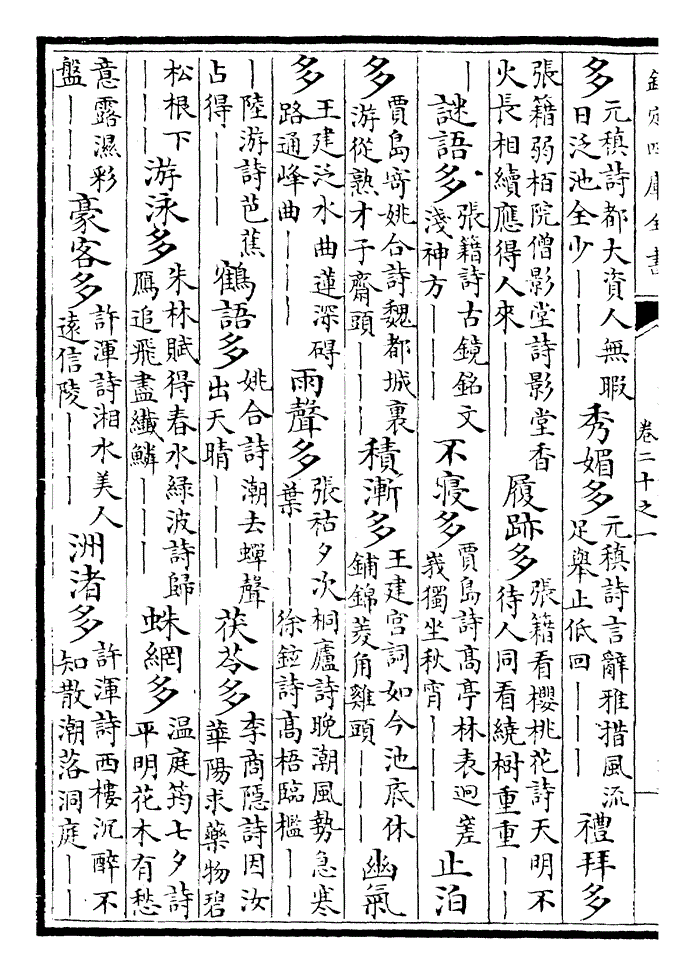 欽定四庫全書
卷二十之一
多 元稹詩都大資人無暇日泛池全少｜｜｜ 秀媚多 元稹詩言辭雅措風流足舉止低回｜｜｜ 禮拜多
張籍弱栢院僧影堂詩影堂香火長相續應得人來｜｜｜ 履跡多 張籍看櫻桃花詩天明不待人同看繞樹重重｜｜
｜ 謎語多 張籍詩古鏡銘文淺神方｜｜｜ 不寢多 賈島詩高亭林表迥嵳峩獨坐秋宵｜｜｜ 止泊
多 賈島寄姚合詩魏都城裏游從熟才子齋頭｜｜｜ 積漸多 王建宮詞如今池底休鋪錦菱角雞頭｜｜｜ 幽氣
多 王建泛水曲蓮深碍路通峰曲｜｜｜ 雨聲多 張祜夕次桐廬詩晚潮風勢急寒葉｜｜｜ 徐鉉詩高梧臨檻｜｜
｜ 陸游詩芭蕉占得｜｜｜ 鶴語多 姚合詩潮去蟬聲出天晴｜｜｜ 茯苓多 李商隱詩因汝華陽求藥物碧
松根下｜｜｜ 游泳多 朱林賦得春水綠波詩歸鴈追飛盡纖鱗｜｜｜ 蛛網多 温庭筠七夕詩平明花木有愁
意露濕彩盤｜｜｜ 豪客多 許渾詩湘水美人遠信陵｜｜｜ 洲渚多 許渾詩西樓沉醉不知散潮落洞庭｜｜